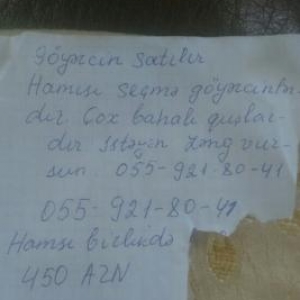 Göyərçin satılır
Hamısı seçmə göyərçinlə
dir Çox bahalı quşlar-
dır İstəyən zəng vur-
sun. 055-921-80-41
055-921-80-41
Hamsı birlikdə
450 AZN